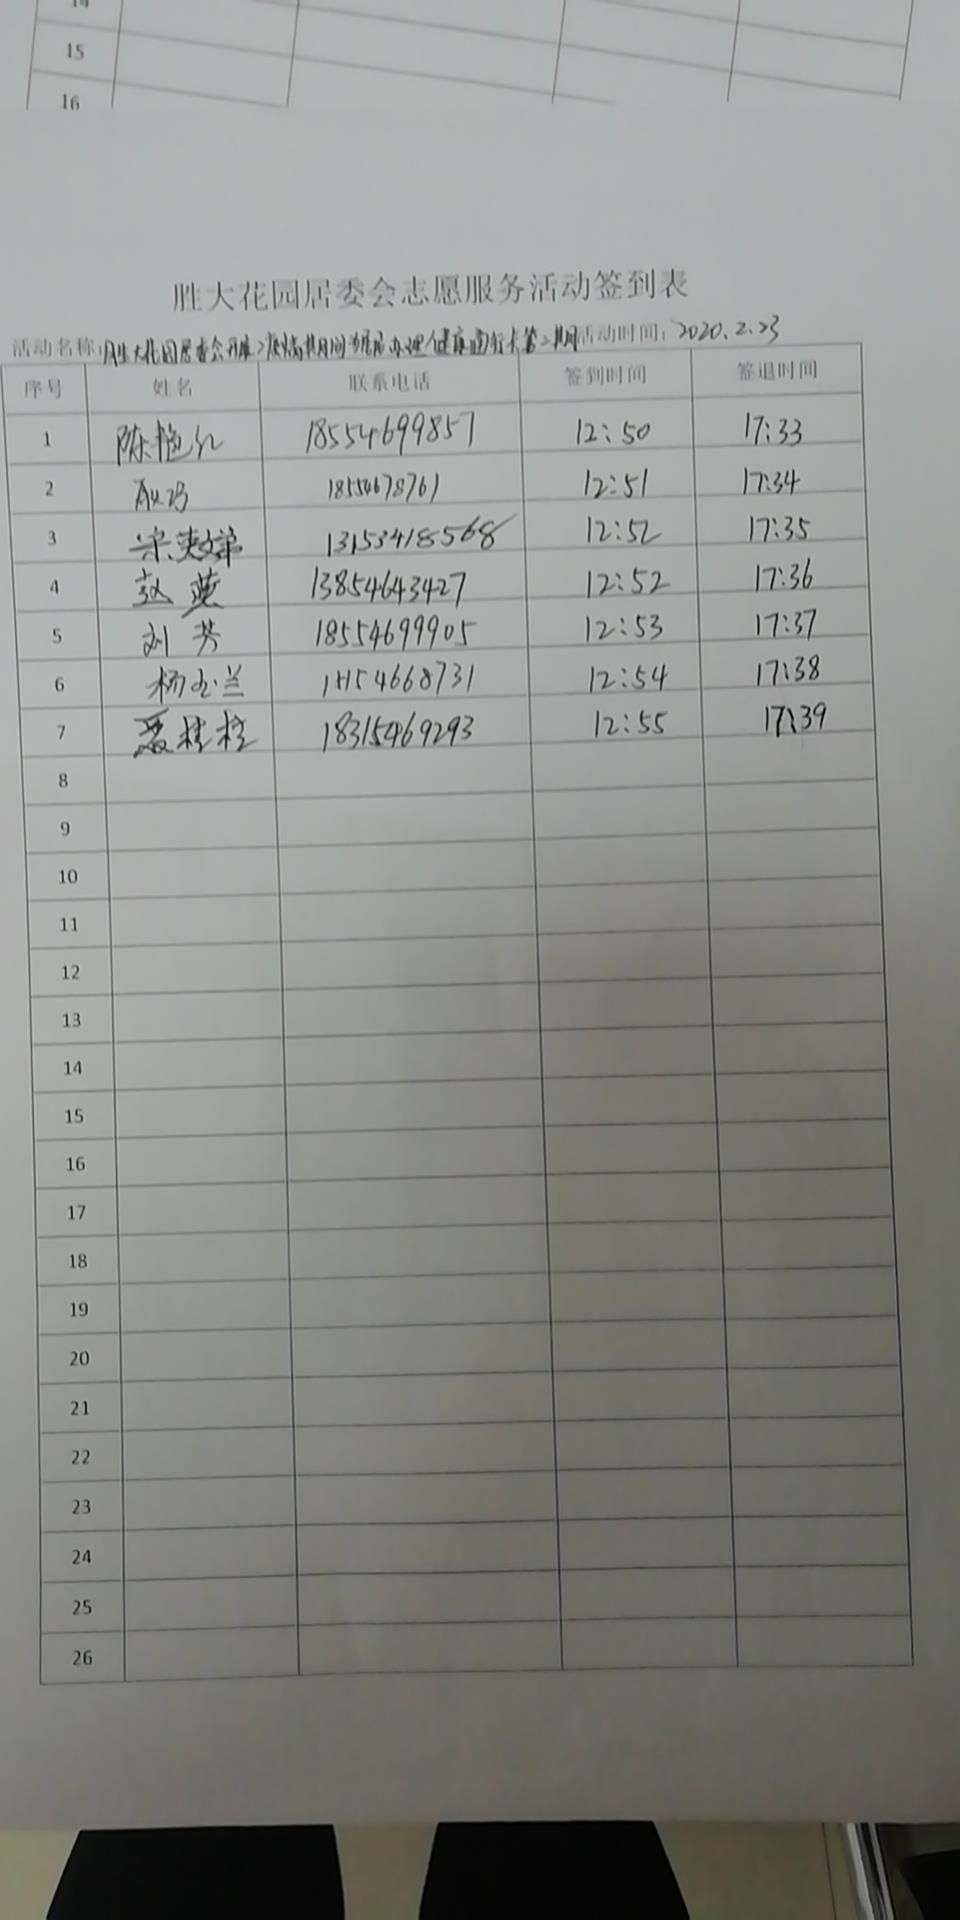 15
16
胜大花园居委会志愿服务活动签到表
活动名称:胜大花园居委会开展疫情期间为居民办理健康通行卡第二期 活动时间: 2020.2.23
序号 姓名 联系电话 签到时间 签退时间
1 陈艳红 18554699857 12:50 17:33
2 18154678761 12:51 17:34
3 13153418568 12:52 17:35
4 赵燕 13854643427 12:52 17:36
5 刘芳 18554699905 12:53 17:37
6 杨玉兰 12:54 17:38
7 聂桂枝 18315469293 12:55 17:39
8
9
10
11
12
13
14
15
16
17
18
19
20
21
22
23
24
25
26